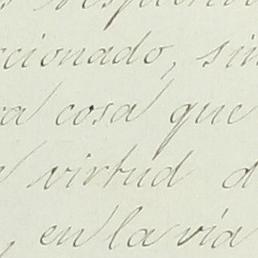 cionado, sin
a cosa que
virtud d
, en la vía